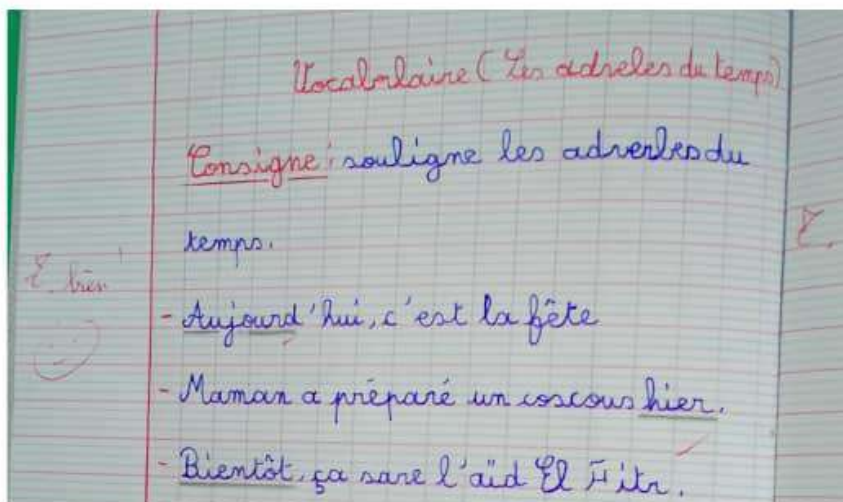 Vocabulaire (Les adveles du temps)
Consigne : souligne les adverbes du
temps.
T. bien
- Aujourd'hui, c'est la fête
- Maman a préparé un coscous hier.
- Bientôt, ça sare l'aïd El Fitr.